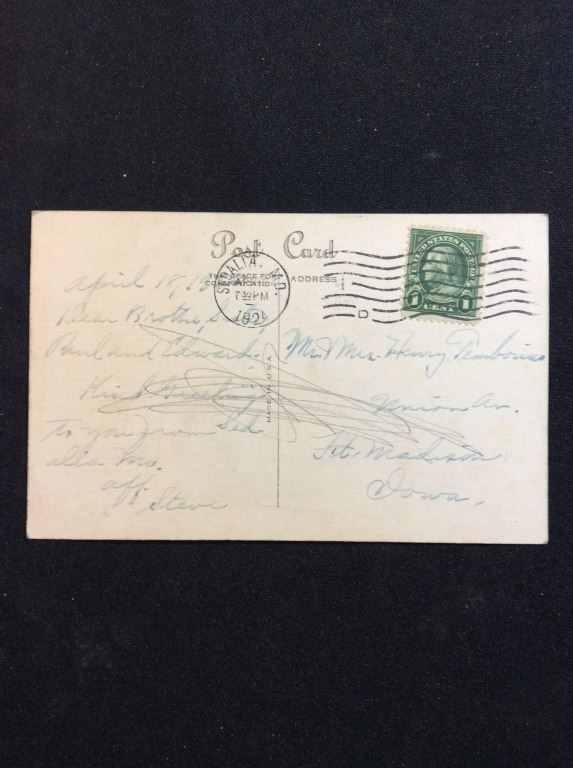 Post Card
THIS SPACE FOR
COMMUNICATION
ADDRESS
SEDALIA, MO.
7 30 PM
192
D
UNITED STATES POSTAGE
1 CENT 1
MADE IN U.S.A.
April 18,
Dear Brother,
Paul and Edward.
Kind Greeting
to you from Sed
alia Mo.
aff.
Steve
Mr. Mrs. Henry
Union Av.
Ft. Madison
Iowa,